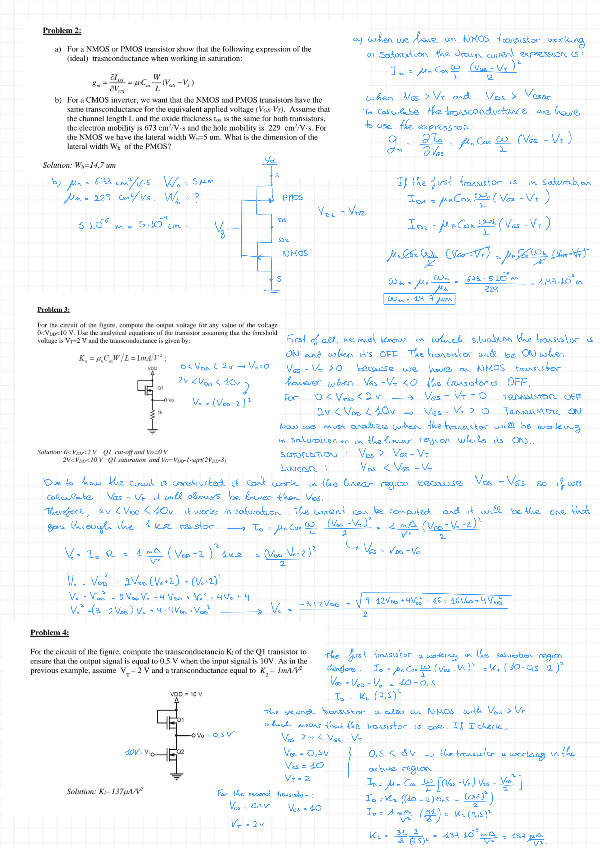 Problem 2:
a) For a NMOS or PMOS transistor show that the following expression of the
(ideal) trasnconductance when working in saturation:
g_m = ∂I_DS/∂V_GS = μ·C_ox W/L (V_GS − V_T)
b) For a CMOS inverter, we want that the NMOS and PMOS transistors have the
same transconductance for the equivalent applied voltage (V_GS-V_T). Assume that
the channel length L and the oxide thickness t_ox is the same for both transistors,
the electron mobility is 673 cm²/V·s and the hole mobility is 229 cm²/V·s. For
the NMOS we have the lateral width W_e=5 um. What is the dimension of the
lateral width W_h of the PMOS?
Solution: W_h=14,7 um
a) When we have an NMOS transistor working
in saturation the drain current expression is:
I_D = μn Cox W/L (VGS − VT)²/2
when VGS > VT and VDS >
To calculate the transconductance we have
to use the expression:
gm = ∂ID/∂VGS = μn Cox W/L (VGS − VT)
b) μn = 673 cm²/V·s Wn = 5μm
μn = 229 cm²/V·s. Wh = ?
5·10⁻⁶ m = 5·10⁻⁴ cm.
PMOS
NMOS
Vg
S
D1
D2
S
If the first transistor is in saturation
ID1 = μn Cox W/L (VGS − VT)
ID2 = μn Cox W/L (VGS − VT)
= 1,47·10⁻⁵ m
Wh = 14.7 μm
Problem 3:
For the circuit of the figure, compute the output voltage for any value of the voltage
0<V_DD<10 V. Use the analytical equations of the transistor assuming that the threshold
voltage is V_T=2 V and the transconductance is given by:
K_n = μ_n C_ox W/L = 1mA/V²;
VDD
Q1
Vo
1k
0 < VDD < 2V → Vo = 0
2V < VDD < 10V
Vo = (VDD − 2)²
Solution: 0<V_DD<2 V Q1 cut-off and Vo=0 V
2V<V_DD<10 V Q1 saturation and Vo=V_DD-1-sqrt(2V_DD-3)
First of all, we must know in which situation the transistor is
ON and when it's OFF. The transistor will be ON when
VGS − VT > 0 because we have an NMOS transistor
however when VGS − VT < 0 the transistor is OFF.
For 0 < VDD < 2V → VGS − VT = 0 TRANSISTOR OFF
2V < VDD < 10V → VGS − VT > 0 TRANSISTOR ON
Now we must analize when the transistor will be working
in saturation or in the linear region while its ON..
SATURATION: VDS > VGS − VT
LINEAR: VDS < VGS − VT
Due to how the circuit is constructed it can't work in the linear region because VDS = VGS so if we
calculate VGS − VT it will always be lower than VDS.
Therefore, 2V < VDD < 10V it works in saturation. The current can be computed and it will be the one that
goes through the 1 kΩ resistor → ID = μn Cox W/L (VGS − VT)²/2 = 1 mA/V² (VDD − Vo − 2)²/2
VGS = VDD − Vo
Vo = ID R = 1 mA/V² (VDD − 2)² 1kΩ = (VDD − Vo − 2)²/2
Vo = VDD² − 2VDD (Vo + 2) + (Vo + 2)²
Vo = VDD² − 2VDD Vo − 4VDD + Vo² + 4Vo + 4
Problem 4:
For the circuit of the figure, compute the transconductancia K_1 of the Q1 transistor to
ensure that the output signal is equal to 0.5 V when the input signal is 10V. As in the
previous example, assume V_T = 2 V and a transconductance equal to K_2 = 1mA/V²
VDD = 10 V
Q1
Vo = 0,5V
10V = Vi
Q2
Solution: K_1=137μA/V²
The first transistor is working in the saturation region
therefore ID = μn Cox W/L (VGS − VT)² = K1 (10 − 0,5 − 2)²
VGS = VDD − Vo = 10 − 0,5
ID = K1 (7,5)²
The second transistor is also an NMOS with VGS > VT
which means that the transistor is one. If I check,
VDS = 0,5V
VGS = 10
VT = 2
0,5 < 8V → the transistor is working in the
active region
ID = μn Cox W/L [(VGS − VT) VDS − VDS²/2]
ID = K2 ((10 − 2) 0,5 − (0,5)²/2)
For the second transistor:
VDS = 0.5V VGS = 10
VT = 2V
K1 = 31/8 2/(7,5)² = 137 10⁻⁶ A/V² = 137 μA/V².